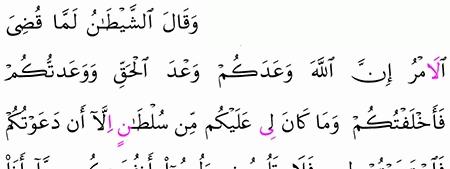 وَقَالَ ٱلشَّيْطَٰنُ لَمَّا قُضِىَ
ٱلَامْرُ إِنَّ ٱللَّهَ وَعَدَكُمْ وَعْدَ ٱلْحَقِّ وَوَعَدتُّكُمْ
فَأَخْلَفْتُكُمْ وَمَا كَانَ لِى عَلَيْكُم مِّن سُلْطَٰنٍ اِلَّآ أَن دَعَوْتُكُمْ